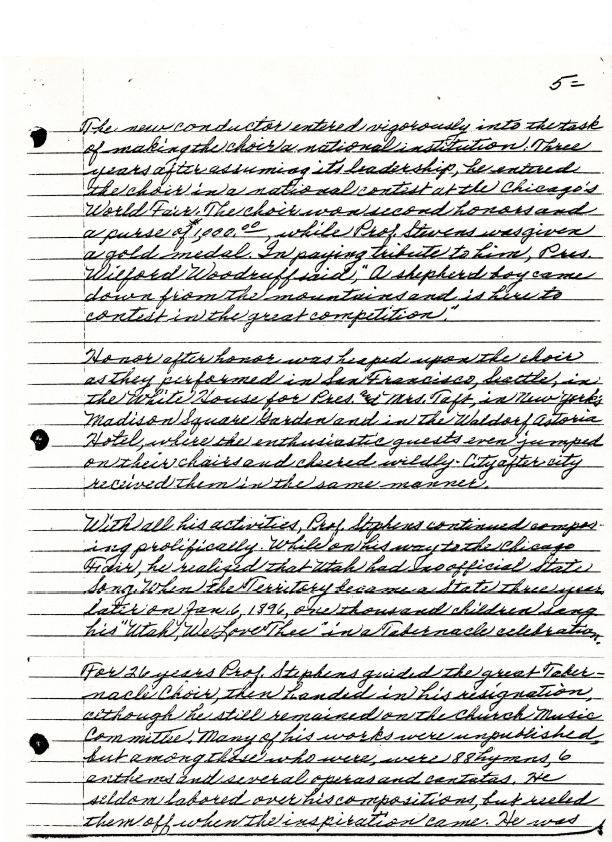 5=
The new conductor entered vigorously into the task
of making the choir a national institution. Three
years after assuming its leadership, he entered
the choir in a national contest at the Chicago's
World Fair. The choir won second honors and
a purse of $1,000.00, while Prof. Stevens was given
a gold medal. In paying tribute to him, Pres.
Wilford Woodruff said, "A shepherd boy came
down from the mountains and is here to
contest in the great competition."
Honor after honor was heaped upon the choir
as they performed in San Francisco, Seattle, in
the White House for Pres. and Mrs. Taft, in New York's
Madison Square Garden and in the Waldorf Astoria
Hotel, where the enthusiastic guests even jumped
on their chairs and cheered wildly. City after city
received them in the same manner.
With all his activities, Prof. Stephens continued compos-
ing prolifically. While on his way to the Chicago
Fair, he realized that Utah had no official State
Song. When the Territory became a State three year
later on Jan. 6, 1896, one thousand children sang
his "Utah, We Love Thee" in a Tabernacle celebration.
For 26 years Prof. Stephens guided the great Taber-
nacle Choir, then handed in his resignation,
although he still remained on the Church Music
Committee. Many of his works were unpublished,
but among those who were, were 88 hymns, 6
anthems and several operas and cantatas. He
seldom labored over his compositions, but reeled
them off when the inspiration came. He was